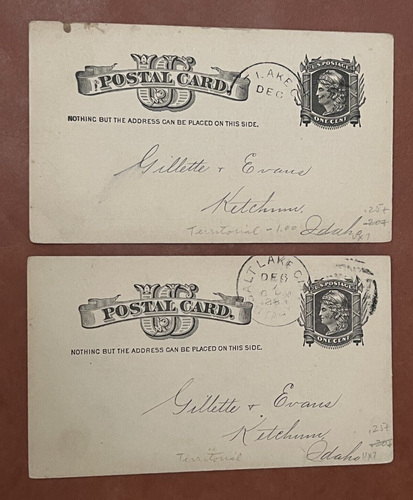 US
POSTAL CARD.
U.S. POSTAGE
ONE CENT
T LAKE C
DEC
NOTHING BUT THE ADDRESS CAN BE PLACED ON THIS SIDE.
Gillette & Evans
Ketchum.
Idaho
Territorial - 1.00
.25¢
.20¢
UX7
US
POSTAL CARD.
U.S. POSTAGE
ONE CENT
ALT LAKE CI
DEC
NOTHING BUT THE ADDRESS CAN BE PLACED ON THIS SIDE.
Gillette & Evans
Ketchum
Idaho
Territorial
.25¢
UX7